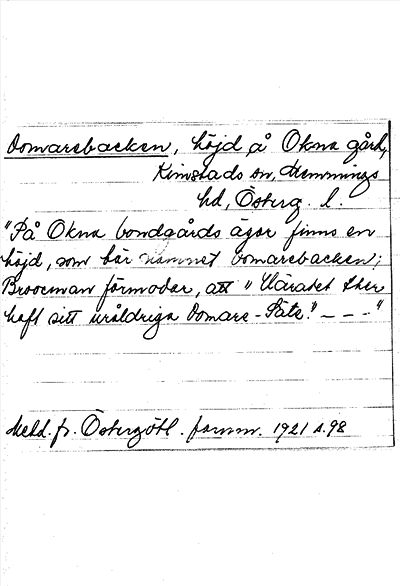 Domarebacken, höjd å Okna gård,
Kimstads sn, Memmings
hd, Österg. l.
"På Okna bondgårds ägor finns en
höjd, som bär namnet Domarebacken;
Broocman förmodar, att "Häradet ther
haft sitt uråldriga Domare-Säte." - - - "
Medd. fr. Östergötl. fornm. 1921 s. 98